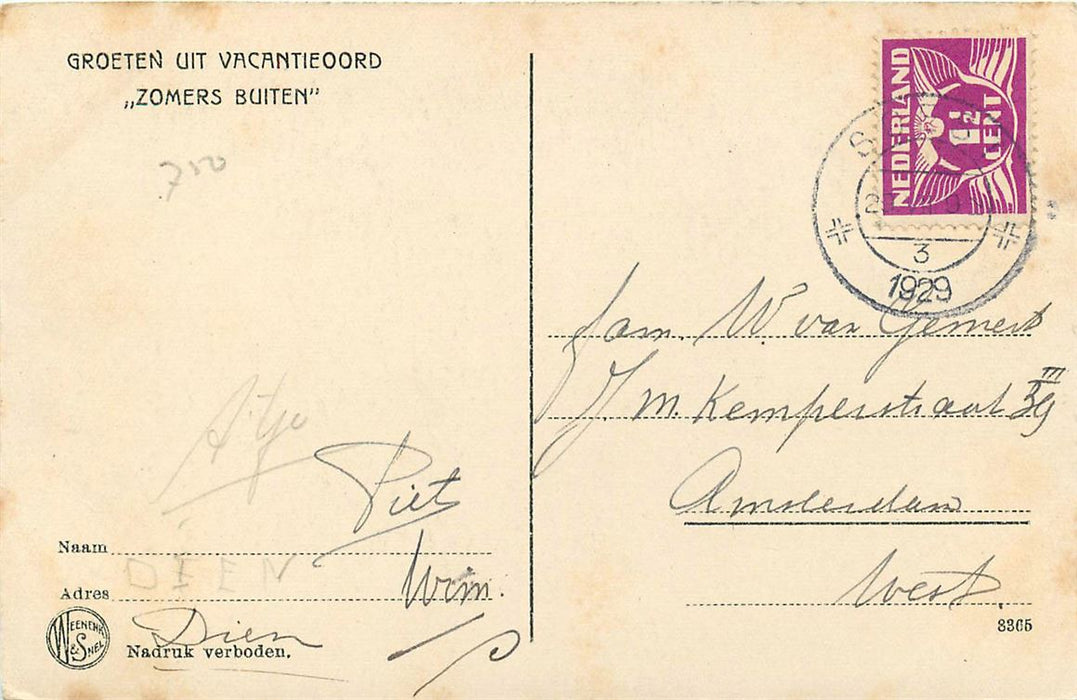 GROETEN UIT VACANTIEOORD
„ZOMERS BUITEN”
750
Piet
Naam
DIEN
Adres
Wim.
Dien
WEENENK & SNEL
Nadruk verboden.
NEDERLAND
1½ CENT
3
1929
fam. W. van Gemert
J. M. Kemperstraat 39 III
Amsterdam
West.
3365